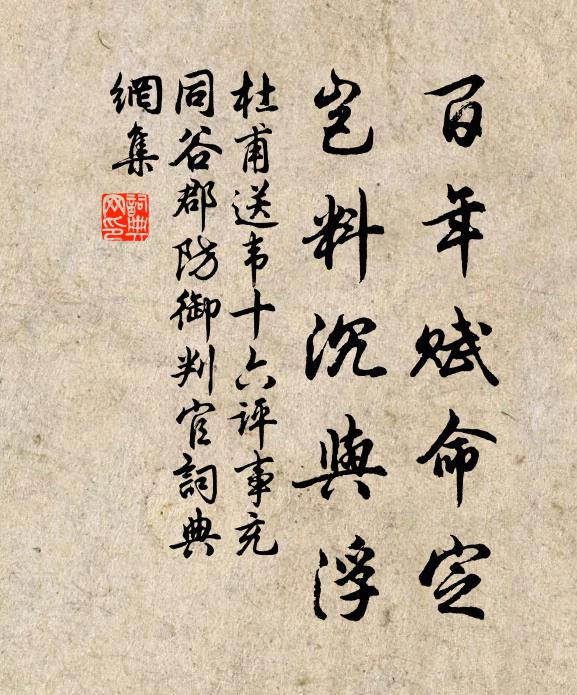 百年賦命定
豈料沉與浮
杜甫送韦十六评事充
同谷郡防御判官詞典
網集
詞典
网印